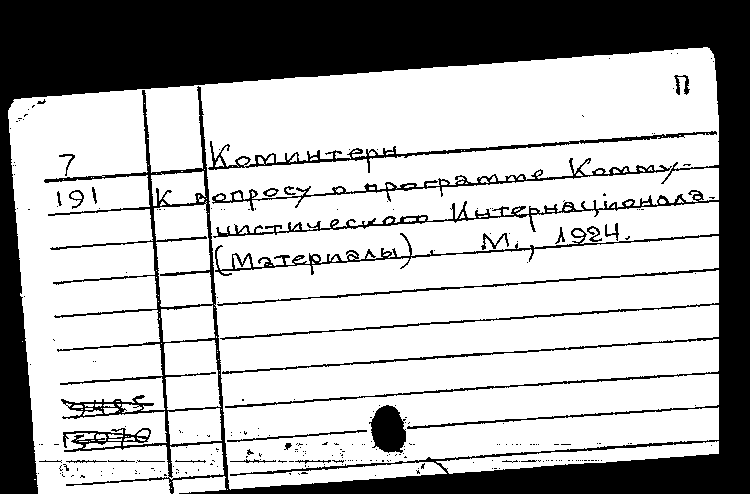 П
7 Коминтерн.
191 К вопросу о программе Комму-
нистического Интернационала.
(Материалы). М., 1924.
3485
13070